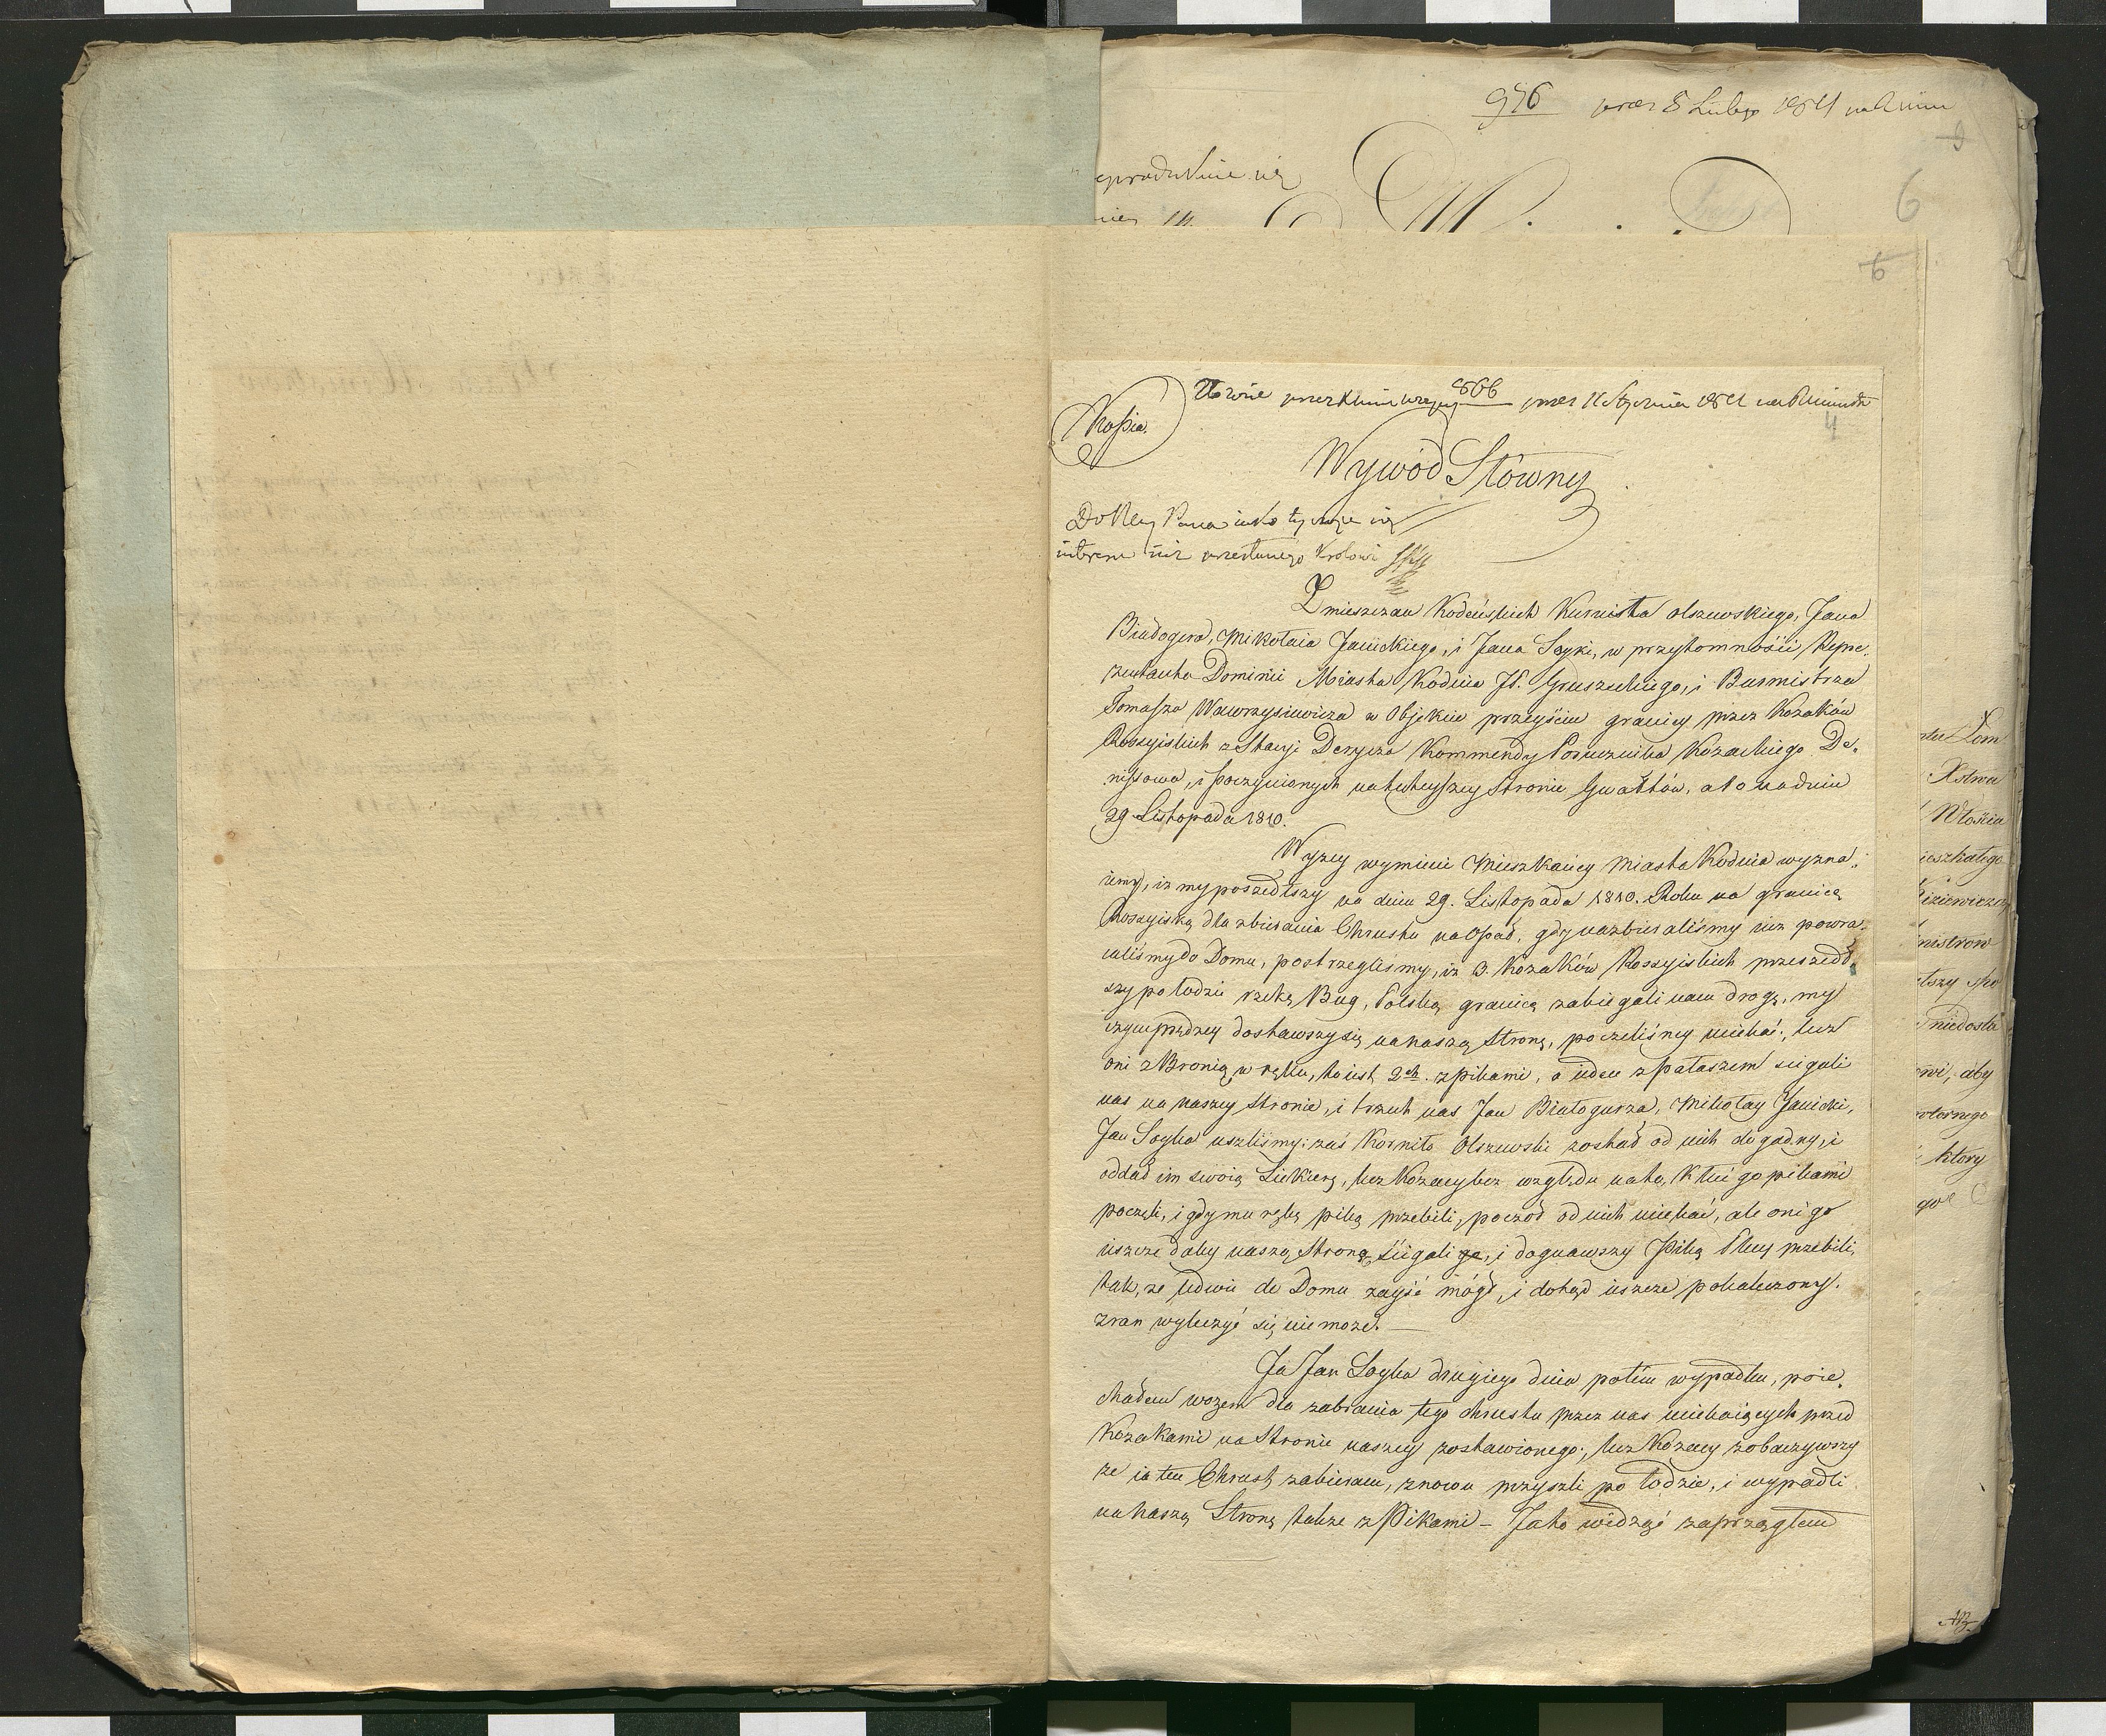 976 prez 8 Lutego 1811
6
6
866 prez 11 Stycznia 1811
Kopia.
4
Wywód Słowny
Z mieszczan Kodeńskich Kurniła olszewskiego, Jana
Białogurá, Mikołaia Janickiego, i Jana Soyki, w przytomności Repre-
zentanta Dominii Miasta Kodnia JP. Gruszeckiego, i Burmistrza
Tomasza Wawrzysiewicza w Objekcie przeyściu granicy przez Kozaków
Rossyiskich z Stacyi Kommendy Porucznika Kozackiego De-
nissowa, i poczynionych na tuteyszey Stronie Gwałtów, a to na dniu
29 Listopada 1810.
Wyzey wymienie Mieszkańcy Miasta Kodnia wyzna-
iemy, iż my poszedłszy na dniu 29. Listopada 1810. Roku na granicę
Rossyiską dla zbierania Chrustu na Opał, gdy nazbieraliśmy iuz powra-
caliśmy do Domu, postrzegliśmy, iż 3. Kozaków Rossyiskich przeszedł-
szy po lodzie rzekę Bug, Polską granicę zabiegali nam drogę, my
czymprędzey dostawszy się na naszą Stronę, poczeliśmy uciekać, lecz
oni z Bronią w ręku, to iest 2ch. z pikami, a ieden z pałaszem scigali
nas na naszey stronie, i trzech nas Jan Białogurza, Mikołay Janicki,
Jan Soyka uszliśmy: zaś Korniło Olszewski został od nich dogadny, i
oddał im swoią Siekierę, lecz Kozacy bez względu na to, Kłuć go pikami
poczęli, i gdy mu rękę piką przebili, począł od nich uciekać, ale oni go
ieszcze daley naszą Stroną ścigali go, i dognawszy Piką Plecy przebili,
tak, ze ledwie do Domu zayść mógł, i dotąd ieszcze pokaleczony.
z ran wyleczyć się nie moze.
Ja Jan Soyka drugiego dnia potem wypadku, poie-
chałem wozem dla zabrania tego chrustu przez nas uciekaiących przed
Kozakami na Stronie naszey zostawionego, lecz Kozacy zobaczywszy
ze ia ten Chrust zabieram, znowu przyszli po lodzie, i wypadli
na naszą Stronę takze z Pikami – Ja to widząc zaprzągłem